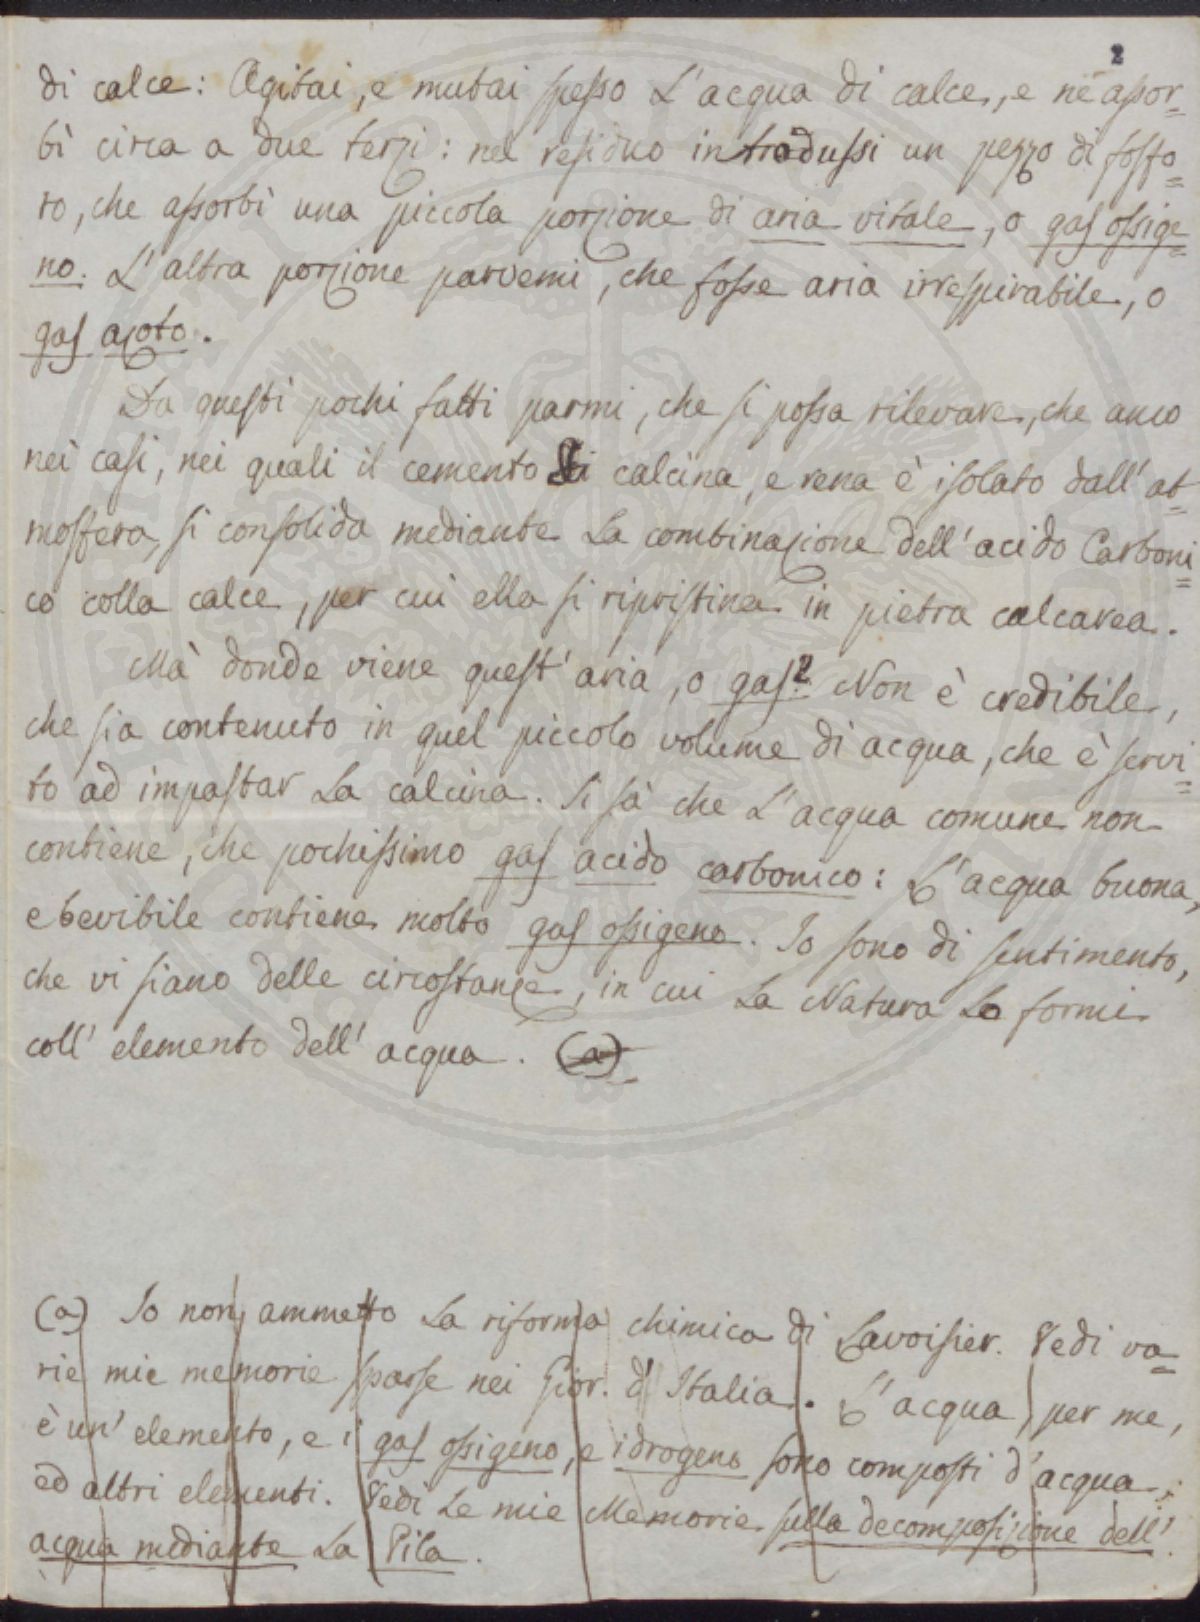 2
di calce: Agitai, e mutai spesso L'acqua di calce, e ne assor=
bì circa a due terzi: nel residuo introdussi un pezzo di fosfo=
ro, che assorbì una piccola porzione di aria vitale, o gas ossige=
no. L'altra porzione parvemi, che fosse aria irrespirabile, o
gas azoto.
Da questi pochi fatti parmi, che si possa rilevare, che anco
nei casi, nei quali il cemento di calcina, e rena è isolato dall'at=
mosfera, si consolida mediante La combinazione dell'acido Carboni=
co colla calce, per cui ella si ripristina in pietra calcarea.
Mà donde viene quest'aria, o gas? Non è credibile,
che sia contenuto in quel piccolo volume di acqua, che è servi=
to ad impastar La calcina. Si sà che L'acqua comune non
contiene, che pochissimo gas acido carbonico: L'acqua buona,
e bevibile contiene molto gas ossigeno. Io sono di sentimento,
che vi siano delle circostanze, in cui La Natura Lo formi
coll'elemento dell'acqua. (a)
(a) Io non ammetto La riforma chimica di Lavoisier. Vedi va=
rie mie memorie sparse nei Gior. d'Italia. L'acqua, per me,
è un'elemento, e i gas ossigeno, e idrogeno sono composti d'acqua,
ed altri elementi. Vedi Le mie Memorie sulla decomposizione dell'
acqua mediante La Pila.